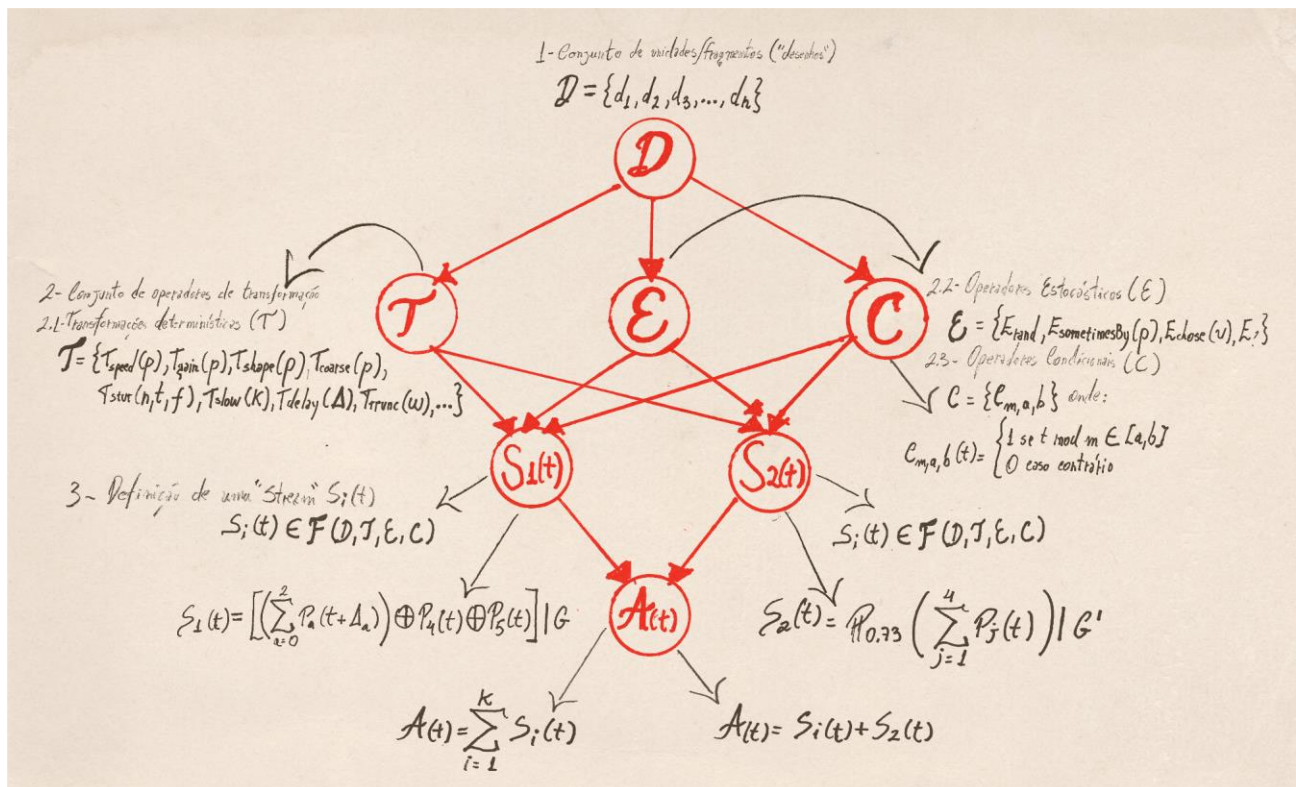 1- Conjunto de unidades/fragmentos ("desenhos")
D = {d1, d2, d3, ..., dn}
D
T
E
C
2- Conjunto de operadores de transformação
2.1- Transformações determinísticas (T)
T = {Tspeed(p), Tgain(p), Tshape(p), Tcoarse(p),
Tstut(n,t,f), Tslow(K), Tdelay(Δ), Ttrunc(ω), ...}
2.2- Operadores Estocásticos (E)
E = {Erand, EsometimesBy(p), Echose(v), E?}
2.3- Operadores Condicionais (C)
C = {Cm,a,b} onde:
Cm,a,b(t) = {1 se t mod m ∈ [a,b]
0 caso contrário
S1(t)
S2(t)
3- Definição de uma "Stream" Si(t)
Si(t) ∈ F(D,T,E,C)
Si(t) ∈ F(D,T,E,C)
S1(t) = [(∑a=0^2 Pa(t+Δa)) ⊕ P4(t) ⊕ P5(t)] | G
A(t)
S2(t) = P0.73 (∑j=1^4 Pj(t)) | G'
A(t) = ∑i=1^K Si(t)
A(t) = Si(t) + S2(t)